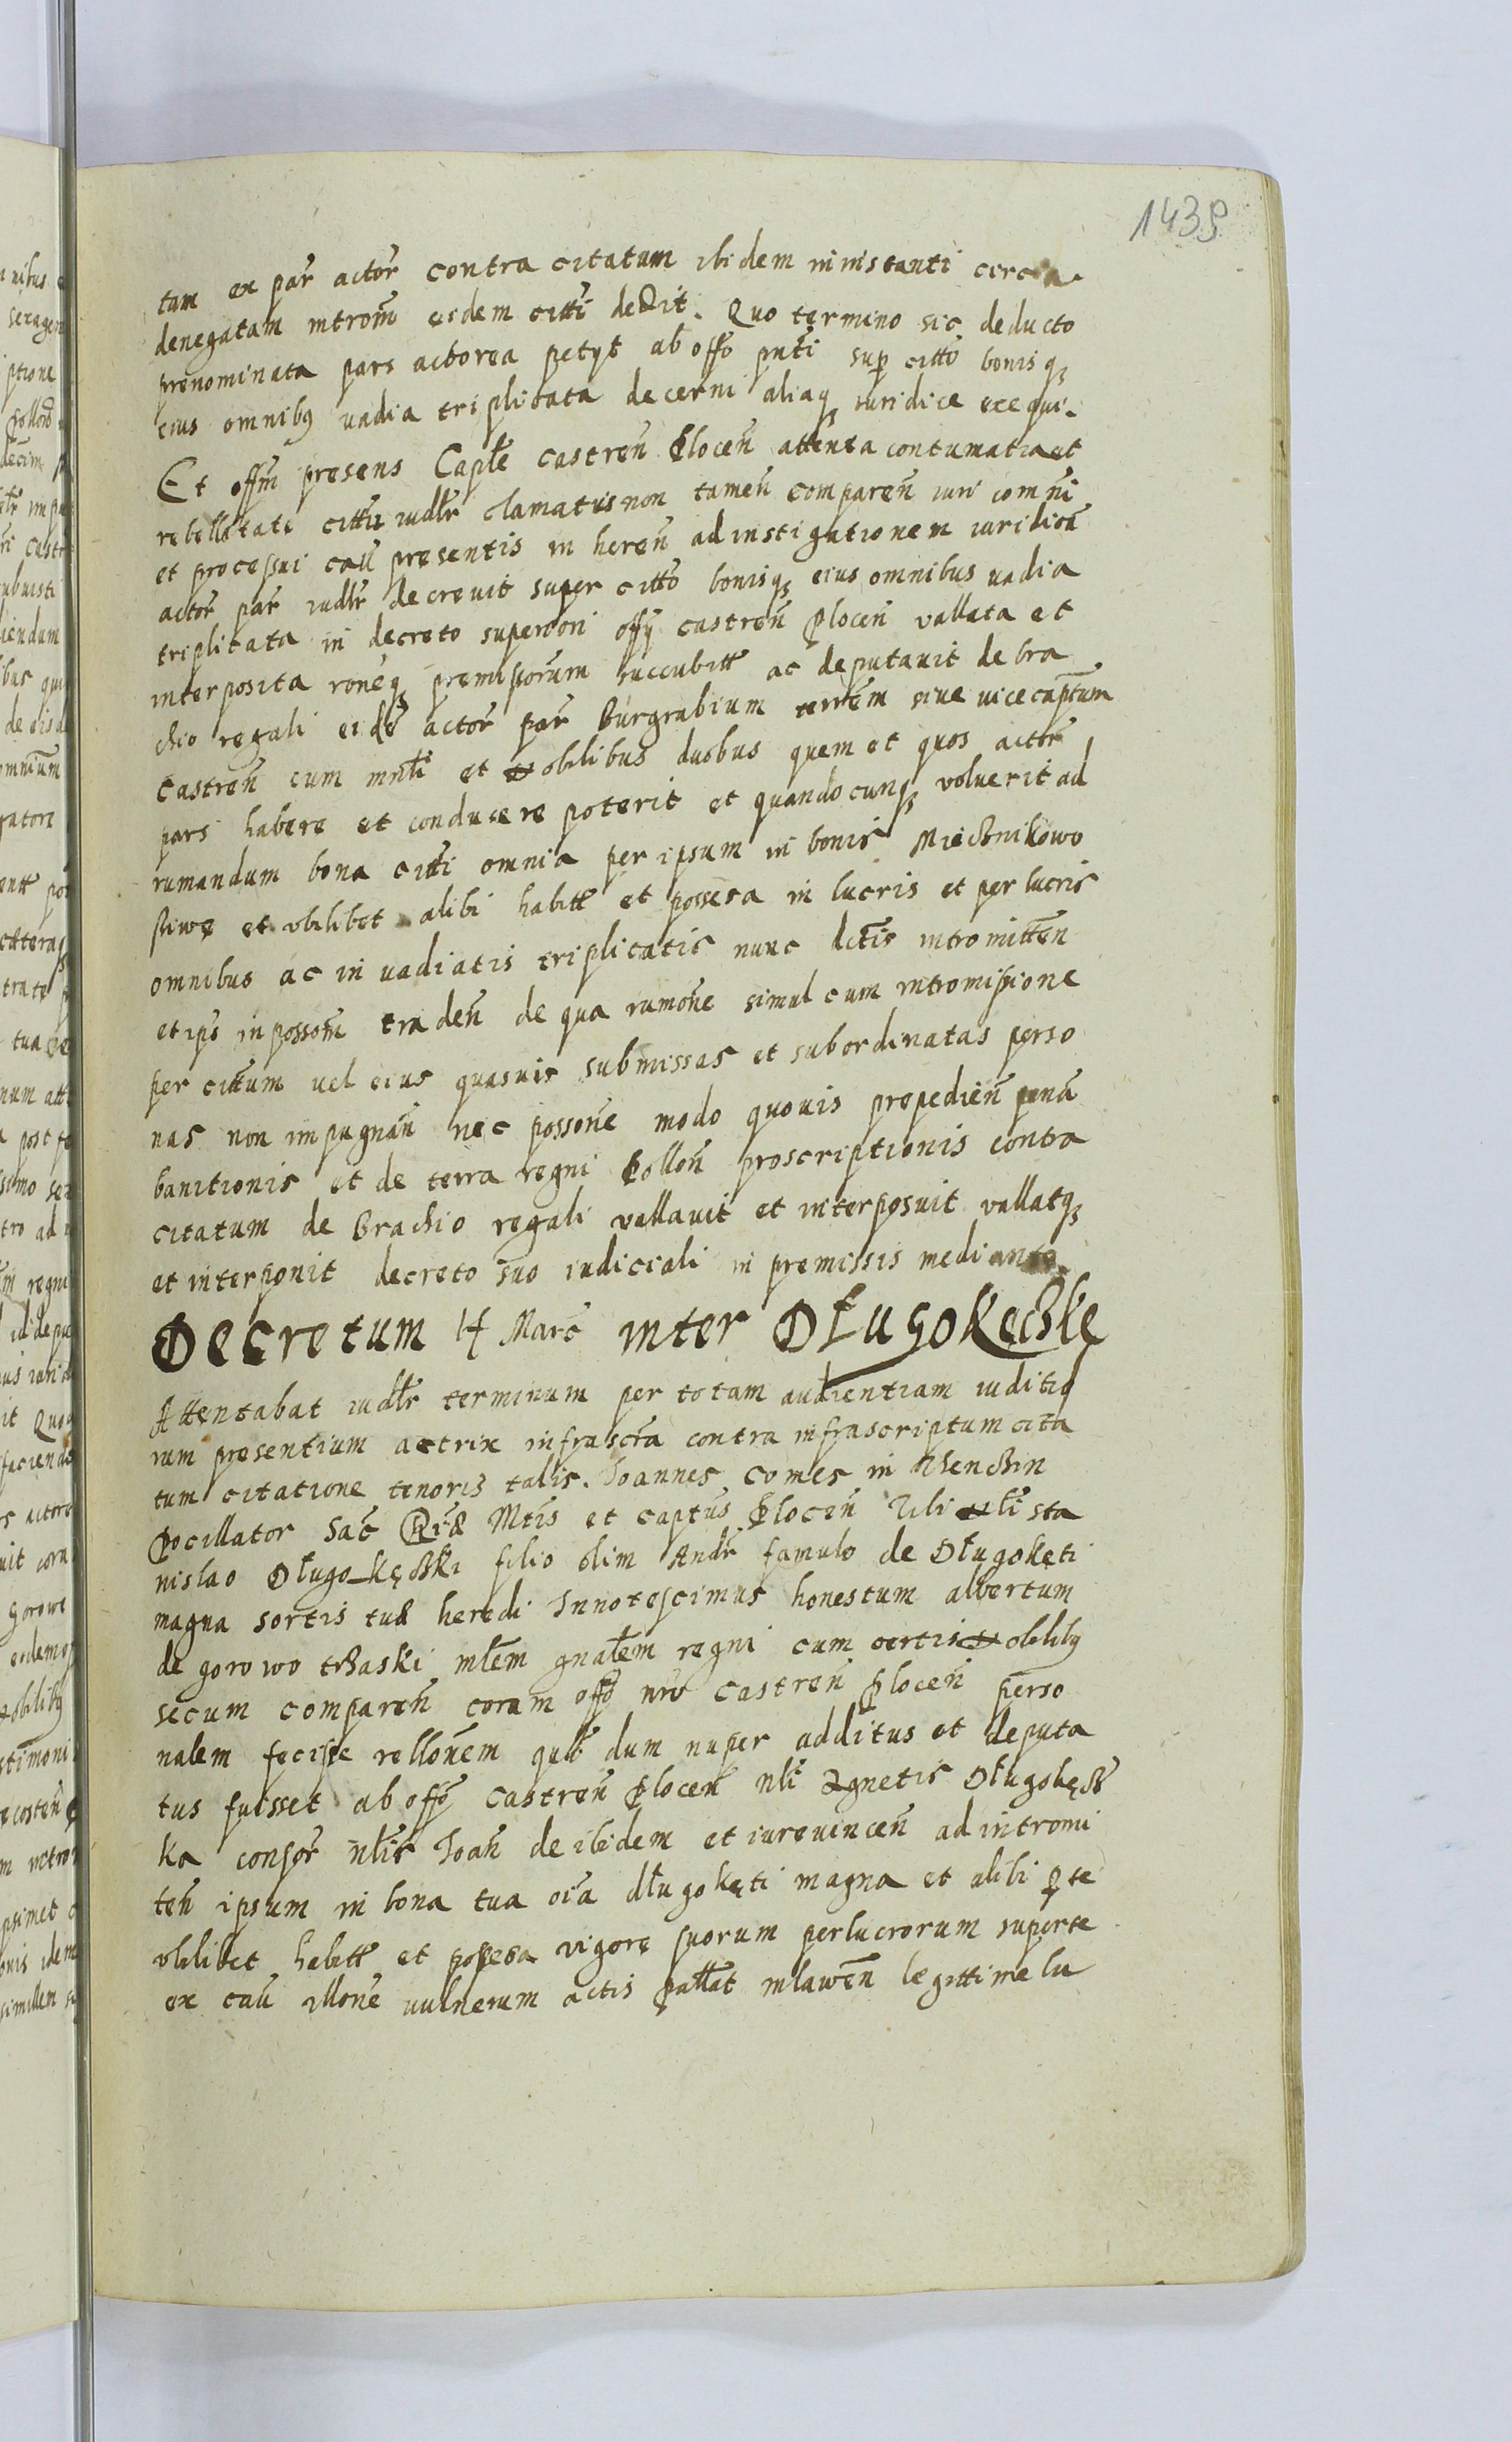 1439
tam ex par actor contra citatum ibidem ininstanti circa
denegatam introm eidem citti dedit. Quo termino sic deducto
prenominata pars actorea petyt ab offo pnti sup citto bonisq
eius omnibq vadia triplicata decerni aliaq iuridice exequi.
Et offm presens Caple castren Plocen attenta contumatia et
rebellitate citti iudlr clamatus non tamen comparen iuri comni
et processui cau presentis in heren ad instigationem iuridica
actor par iudlr decreuit super citto bonisq eius omnibus vadia
triplicata in decreto superiori offy castren Plocen vallata et
interposita roneq premissorum succubitt ac deputauit de bra
chio regali eide actor par Burgrabium terrem siue vicecaptum
castren cum mnli et nobilibus duobus quem et quos actor
pars habere et conducere poterit et quandocunq voluerit ad
rumandum bona citti omnia per ipsum in bonis Miecznikowo
siwe et vbilibet alibi habitt et possesa in lucris et perlucris
omnibus ac in vadiatis triplicatis nunc dictis intromitten
et ips in possom traden de qua rumone simul cum intromissione
per cittum vel eius quasuis submissas et subordinatas perso
nas non impugnan nec possone modo quouis prepedien pena
banitionis et de terra regni Pollon proscriptionis contra
citatum de Brachio regali vallauit et interposuit vallatq
et interponit decreto suo iudiciali in premissis mediante.
Decretum 14 Marc inter Długokęczkę
Attentabat iudlr terminum per totam audientiam iuditio
rum presentium actrix infrascra contra infrascriptum cita
tum citatione tenoris talis. Joannes comes in Thenczin
Pocillator Sac Rie Mtis et captus Plocen Tibi nbli sta
nislao Długo_kęczki filio olim Andr famulo de Długokęti
magna sortis tue heredi Innotescimus honestum albertum
de gorowo trzaski mlem gnalem regni cum certis nobilibq
secum comparen coram offo nro castren Plocen perso
nalem fecisse rellonem qult dum nuper additus et deputa
tus fuisset ab offo castren Plocen nbli Agnetis Długokęcz
ka consor nblis Joan de ibidem et iureuincen ad intromi
ten ipsum in bona tua oia długokęti magna et alibi p te
vbilibet habitt et possesa vigore suorum perlucrorum super te
ex cau illone vulnerum actis pallat mlawen legittime lu